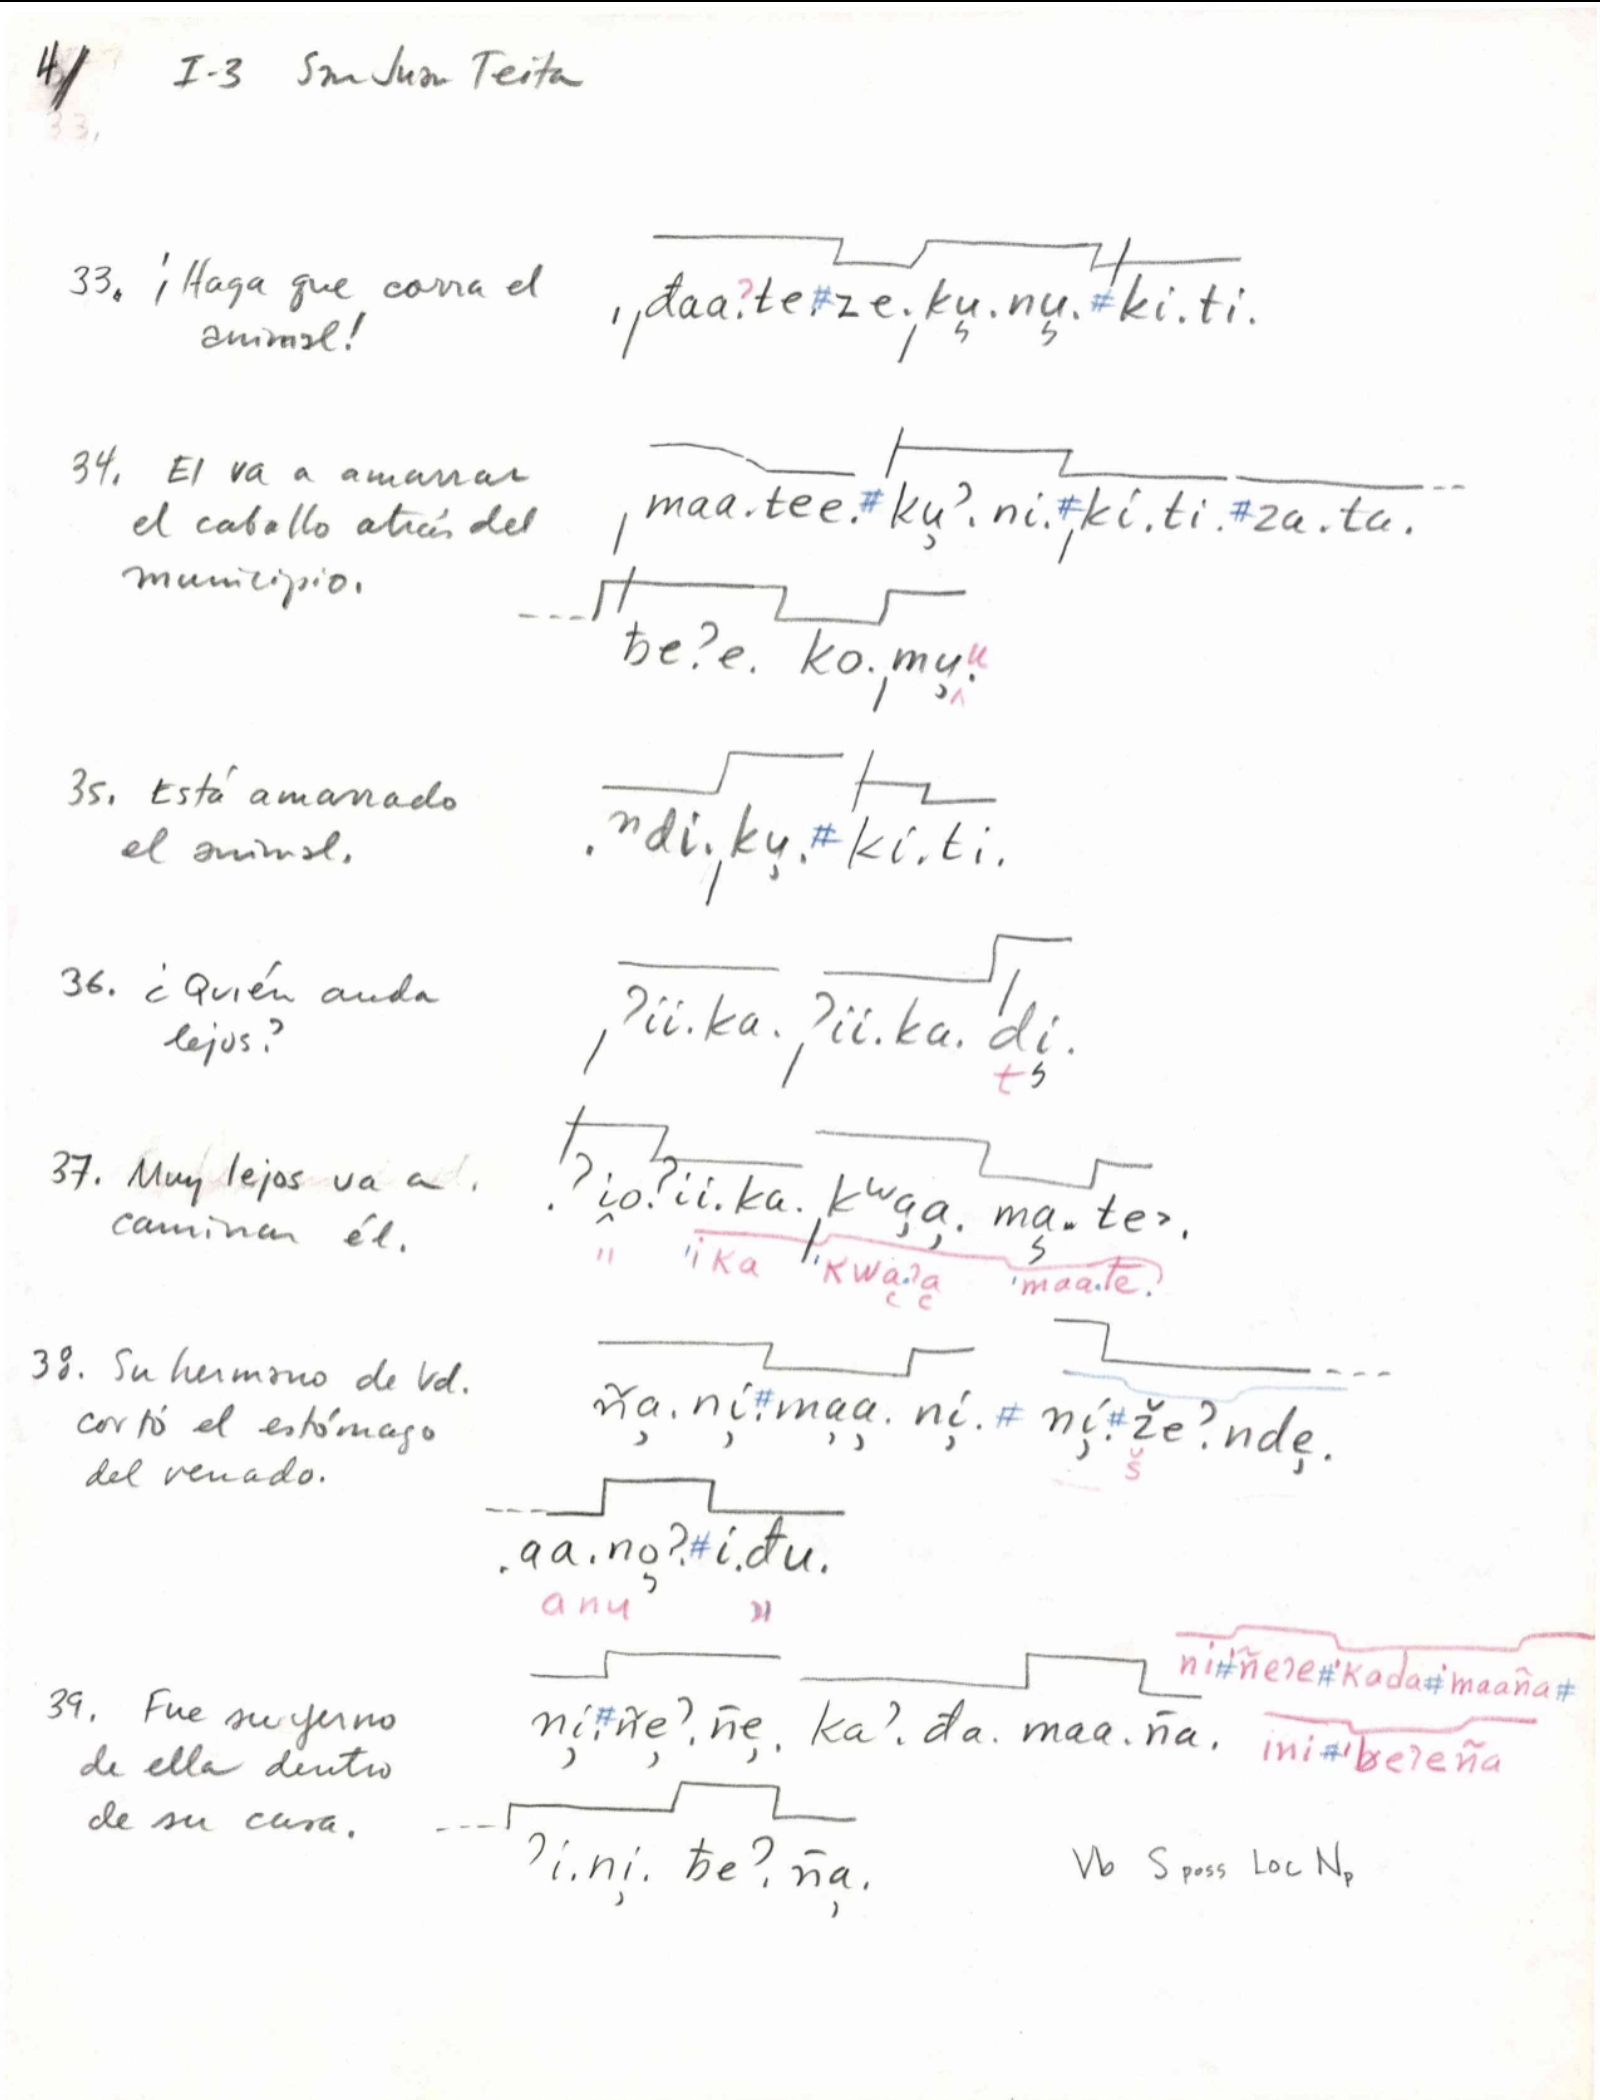 4/ I-3 San Juan Teita
33.
33. ¡Haga que corra el
animal!
ˌđaaˀ.te#ze.ˌkų.nų.#ki.ti.
34. El va a amarrar
el caballo atrás del
municipio.
ˌmaa.tee.#kųˀ.ni.#ˌki.ti.#za.ta.
ƀeˀe. ko.ˌmų.
u
35. Está amarrado
el animal.
.ⁿdi.ˌkų.#ki.ti.
36. ¿Quién anda
lejos?
ˌˀii.ka. ˌˀii.ka. dį.
t
37. Muy lejos va a
caminar él.
.ˀio.ˀii.ka.ˌkʷąą. mą.te.
" 'ika 'kwąˀą 'maa.te.
38. Su hermano de Vd.
cortó el estómago
del venado.
ñą.nį.#mąą.nį.# nį.#žeˀ.ndę.
š
.aa.nǫˀ.#i.đu.
anu "
39. Fue su yerno
de ella dentro
de su casa.
ni#'ñeˀe#'kada#'maaña#
nį.#ñęˀ.ñę. kaˀ.đa. maa.ña.
ini#'ƀeˀeña
ˀi.nį. ƀeˀ.ñą.
Vb S poss Loc Np